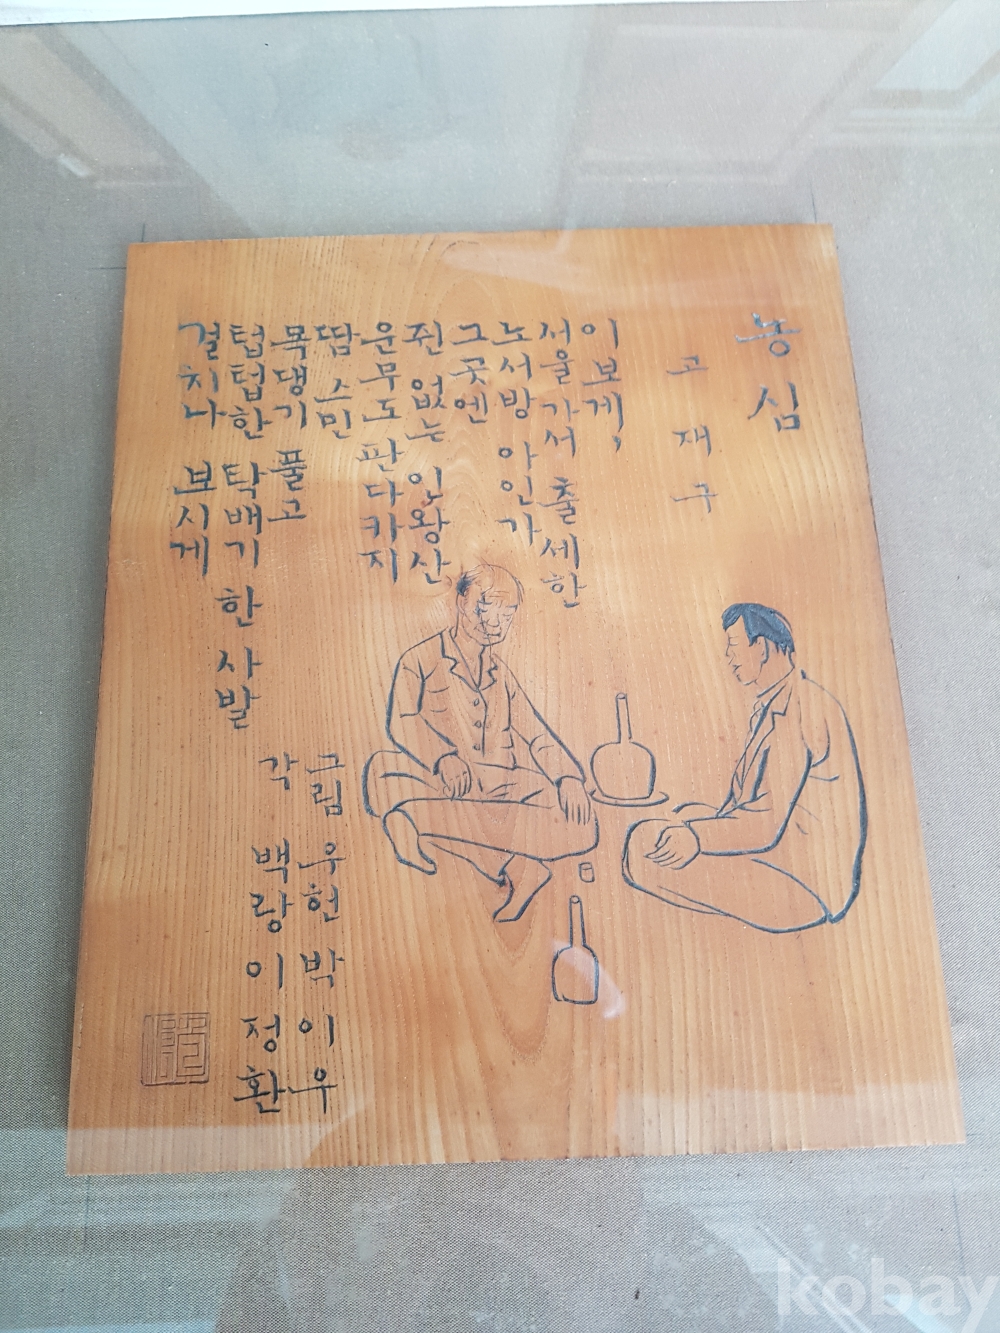 농심
고재구
이보게,
서울가서 출세한
노서방 아인가
그곳엔
쥔 없는 인왕산
운무도 판다카지
땀 스민
목댕기 풀고
텁텁한 탁배기 한 사발
걸치나 보시게
그림 우헌 박이우
각 백랑 이정환
kobay